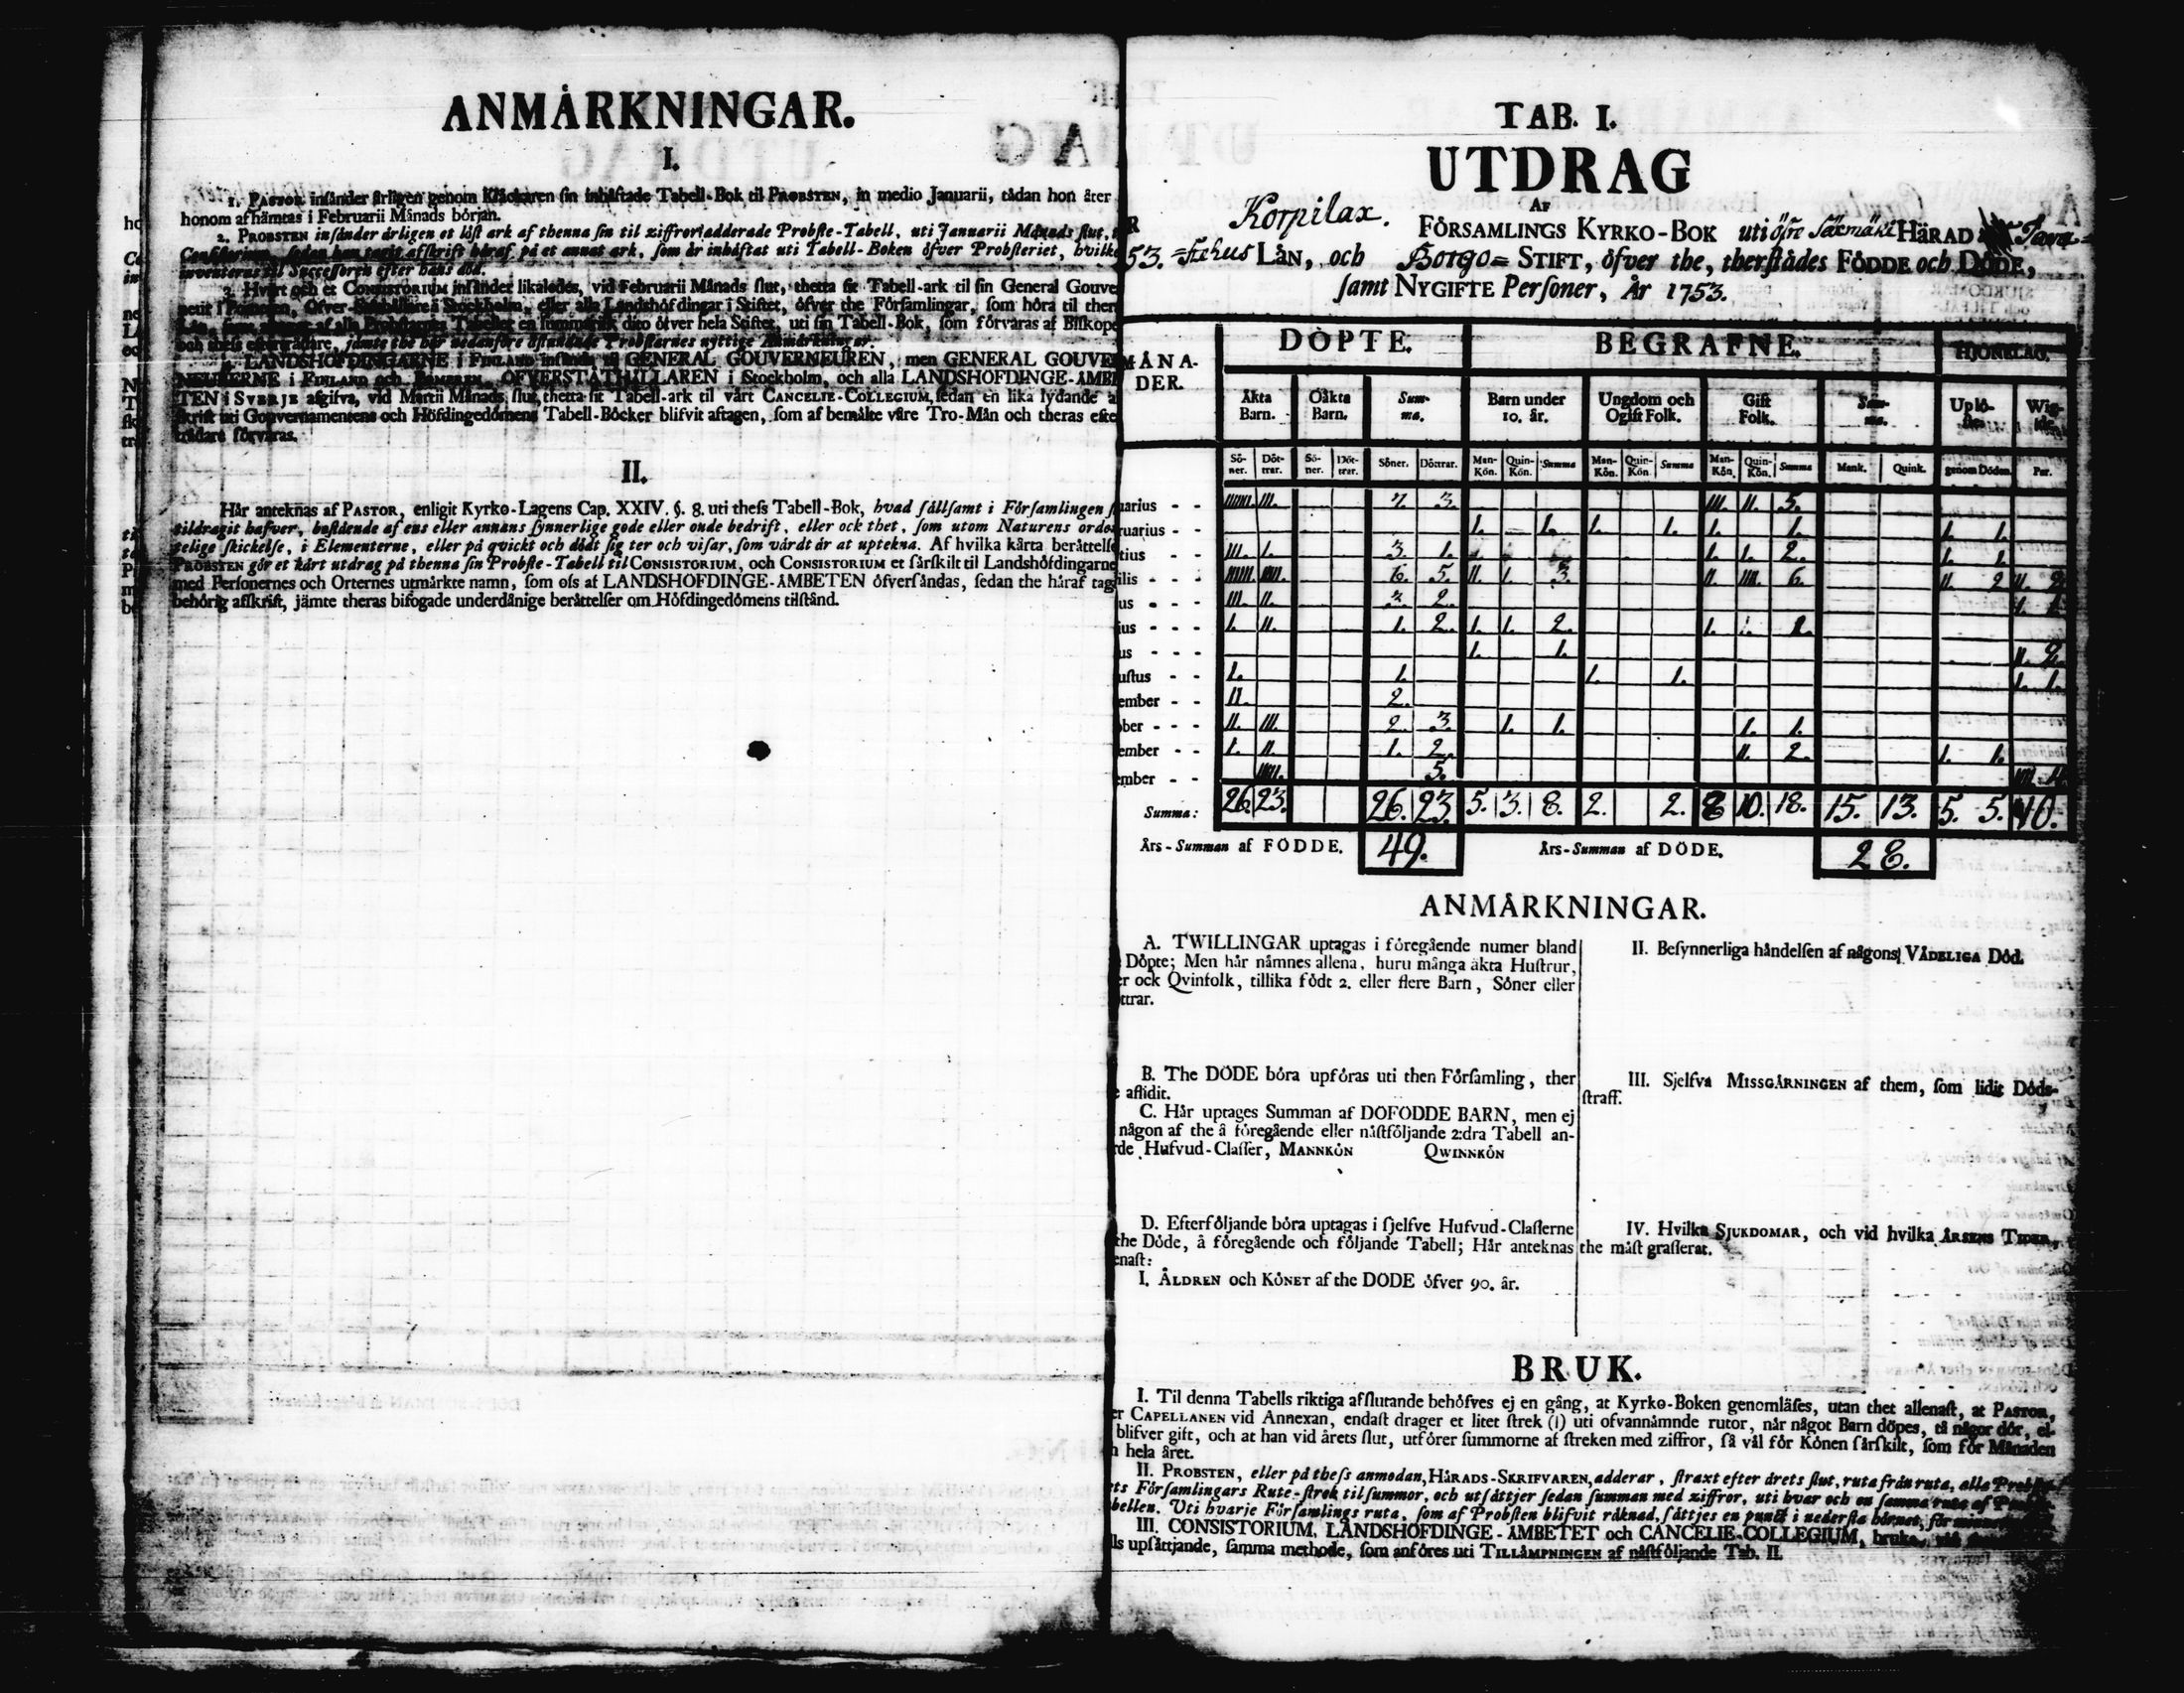 ANMÄRKNINGAR.
I.
1. PASTOR insänder årligen genom Klåckaren sin inhäftade Tabell-Bok til PROBSTEN, in medio Januarii, tådan hon åter
honom afhämtas i Februarii Månads början.
2. PROBSTEN insänder årligen et löst ark af thenna sin til ziffror adderade Probste-Tabell, uti Januarii Månads slut,
Consistorium, sedan han tagit afskrift häraf på et annat ark, som är inhäftat uti Tabell-Boken öfver Probsteriet, hvilke
inventeras til Successoren efter hans död.
3. Hvart och et CONSISTORIUM insänder likaledes, vid Februarii Månads slut, thetta sit Tabell-ark til sin General Gouve
eller alla Landshöfdingar i Stiftet, öfver the Församlingar, som höra til ther
dito öfver hela Stiftet, uti sin Tabell-Bok, som förvaras af Biskope
jämte the här nedanföre åstundade Probstarnes nyttige Anmärkningar.
4. LANDSHÖFDINGARNE i FINLAND insända til GENERAL GOUVERNEUREN, men GENERAL GOUVE
NEURERNE i FINLAND och POMERN, ÖFVERSTÅTHÅLLAREN i Stockholm, och alla LANDSHÖFDINGE-ÄMBE
TEN i SVERJE afgifva, vid Martii Månads slut, thetta sit Tabell-ark til vårt CANCELIE-COLLEGIUM, sedan en lika lydande a
skrift uti Gouvernamentens och Höfdingedömens Tabell-Böcker blifvit aftagen, som af bemälte våre Tro-Män och theras efte
trädare förvaras.
II.
Här anteknas af PASTOR, enligit Kyrko-Lagens Cap. XXIV. §. 8. uti thess Tabell-Bok, hvad sällsamt i Församlingen s
tildragit hafver, bestående af ens eller annans synnerlige gode eller onde bedrift, eller ock thet, som utom Naturens orde
telige skickelse, i Elementerne, eller på qvickt och dödt sig ter och visar, som värdt är at uptekna. Af hvilka kårta berättelse
PROBSTEN gör et kårt utdrag på thenna sin Probste-Tabell til CONSISTORIUM, och CONSISTORIUM et särskilt til Landshöfdingarne
med Personernes och Orternes utmärkte namn, som oss af LANDSHÖFDINGE-ÄMBETEN öfversändas, sedan the häraf tag
behörig afskrift, jämte theras bifogade underdånige berättelser om Höfdingedömens tilstånd.
TAB. I.
UTDRAG
AF
Korpilax. FÖRSAMLINGS KYRKO-BOK uti öfre Säxmäki HÄRAD Tava-
53. =stehus LÄN, och Borgo= STIFT, öfver the, therstädes FÖDDE och DÖDE,
samt NYGIFTE Personer, År 1753.
MÅNA-DER. DÖPTE. BEGRAFNE. HJONELAG.
Äkta Barn. Oäkta Barn. Sum-ma. Barn under 10. år. Ungdom och Ogift Folk. Gift Folk. Sum-ma. Uplö-ste Wig-de.
Sö-ner. Döt-trar. Sö-ner. Döt-trar. Söner. Döttrar. Man-Kön. Quin-Kön. Summa Man-Kön. Quin-Kön. Summa Man-Kön. Quin-Kön. Summa Mank. Quink. genom Döden. Par.
uarius - - IIIIIII. III. 7. 3. III. II. 5.
ruarius - - 1. 1. 1. 1. 1. 1. 1. 1.
tius - - III. 1. 3. 1. 1. 1. 2. 1. 1.
ilis - - - IIIIII. IIIII. 6. 5. II. 1. 3. II. IIII. 6. II. 2 II. 2.
us - - - III. II. 3. 2. 1. 1.
ius - - - 1. II. 1. 2. 1. 1. 2. 1. 1. 2.
us - - - 1. 1. II. 2.
ustus - - 1. 1. 1. 1. 1. 1.
ember - - II. 2.
ober - - - II. III. 2. 3. 1. 1. 1. 1.
ember - - 1. II. 1. 2. II. 2. 1. 1.
ember - - IIIII. 5. IIII. 4.
Summa: 26. 23. 26. 23. 5. 3. 8. 2. 2. 8 10. 18. 15. 13. 5. 5. 10.
Års-Summan af FÖDDE. 49. Års-Summan af DÖDE. 28.
ANMÄRKNINGAR.
A. TWILLINGAR uptagas i föregående numer bland
Döpte; Men här nämnes allena, huru många äkta Hustrur,
er ock Qvinfolk, tillika födt 2. eller flere Barn, Söner eller
ttrar.
B. The DÖDE böra upföras uti then Församling, ther
e aflidit.
C. Här uptages Summan af DÖFÖDDE BARN, men ej
någon af the å föregående eller nästföljande 2:dra Tabell an-
rde Hufvud-Classer, MANNKÖN QWINNKÖN
D. Efterföljande böra uptagas i sjelfve Hufvud-Classerne
the Döde, å föregående och följande Tabell; Här anteknas
enast:
I. ÅLDREN och KÖNET af the DÖDE öfver 90. år.
II. Besynnerliga händelsen af någons VÅDELIGA Död.
III. Sjelfva MISSGÄRNINGEN af them, som lidit Döds-
straff.
IV. Hvilka SJUKDOMAR, och vid hvilka ÅRSENS TIDER,
the mäst grasserat.
BRUK.
I. Til denna Tabells riktiga afslutande behöfves ej en gång, at Kyrko-Boken genomläses, utan thet allenast, at PASTOR,
er CAPELLANEN vid Annexan, endast drager et litet strek (|) uti ofvannämnde rutor, når något Barn döpes, tå någor dör, el-
blifver gift, och at han vid årets slut, utförer summorne af streken med ziffror, så väl för Könen särskilt, som för Månaden
h hela året.
II. PROBSTEN, eller på thess anmodan, HÄRADS-SKRIFVAREN, adderar, straxt efter årets slut, ruta från ruta, alla Probste-
ts Församlingars Rute-strek til summor, och utsättjer sedan summan med ziffror, uti hvar och en samma ruta af
bellen. Uti hvarje Församlings ruta, som af Probsten blifvit räknad, sättjes en punct i nedersta hörnet, för
III. CONSISTORIUM, LANDSHÖFDINGE-ÄMBETET och CANCELIE-COLLEGIUM, bruka, vid
lls upsättjande, samma methode, som anföres uti TILLÄMPNINGEN af nästföljande Tab. II.